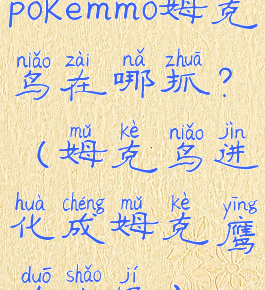 pokemmo姆克
niǎo zài nǎ zhuā
鸟在哪抓？
mǔ kè niǎo jìn
（姆克鸟进
huà chéng mǔ kè yīng
化成姆克鹰
duō shǎo jí